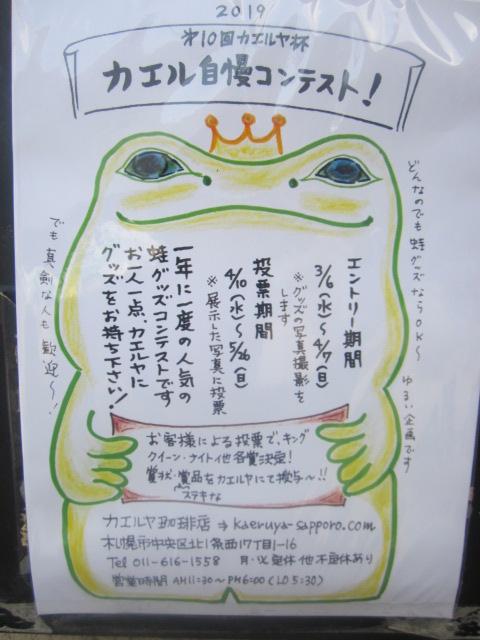 2019
オ10回カエルヤ杯
カエル自慢コンテスト！
どんなのでも蛙グッズならOK〜
ゆるい企画です
エントリー期間
3/6(水)〜4/7(日)
※グッズの写真撮影を
します
投票期間
4/10(水)〜5/26(日)
※展示した写真に投票
一年に一度の人気の
蛙グッズコンテストです
お一人一点、カエルヤに
グッズをお持ち下さい！
でも真剣な人も歓迎〜！
お客様による投票で、キング
クイーン・ナイト他各賞決定！
賞状・賞品をカエルヤにて授与〜!!
ステキな
カエルヤ珈琲店⇒kaeruya-sapporo.com
札幌市中央区北1条西17丁目1-16
Tel 011-616-1558 月・火定休他不定休あり
営業時間 AM11:30〜PM6:00(LO5:30)